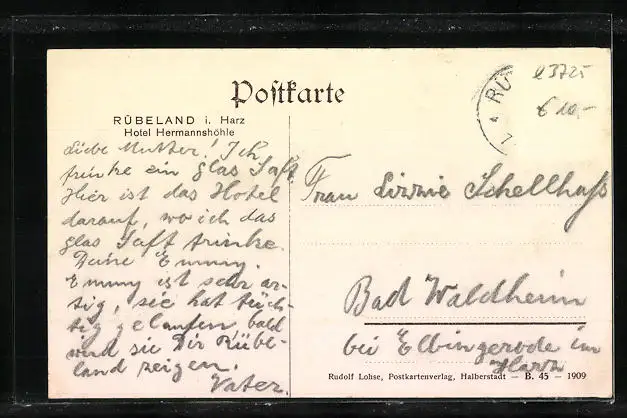 Postkarte
RÜBELAND i. Harz
Hotel Hermannshöhle
Liebe Mutter! Ich
trinke ein glas Saft.
Hier ist das Hotel
darauf, wo ich das
glas Saft trinke.
Deine Emmy.
Emmy ist sehr ar-
tig, sie hat tüch-
tig gelaufen, bald
wird sie Dir Rübe-
land zeigen.
Vater.
* RÜ
23725
€ 10,-
Frau Lizzie Schellhaß
Bad Waldheim
bei Elbingerode im
Harz
Rudolf Lohse, Postkartenverlag, Halberstadt — B. 45 — 1909